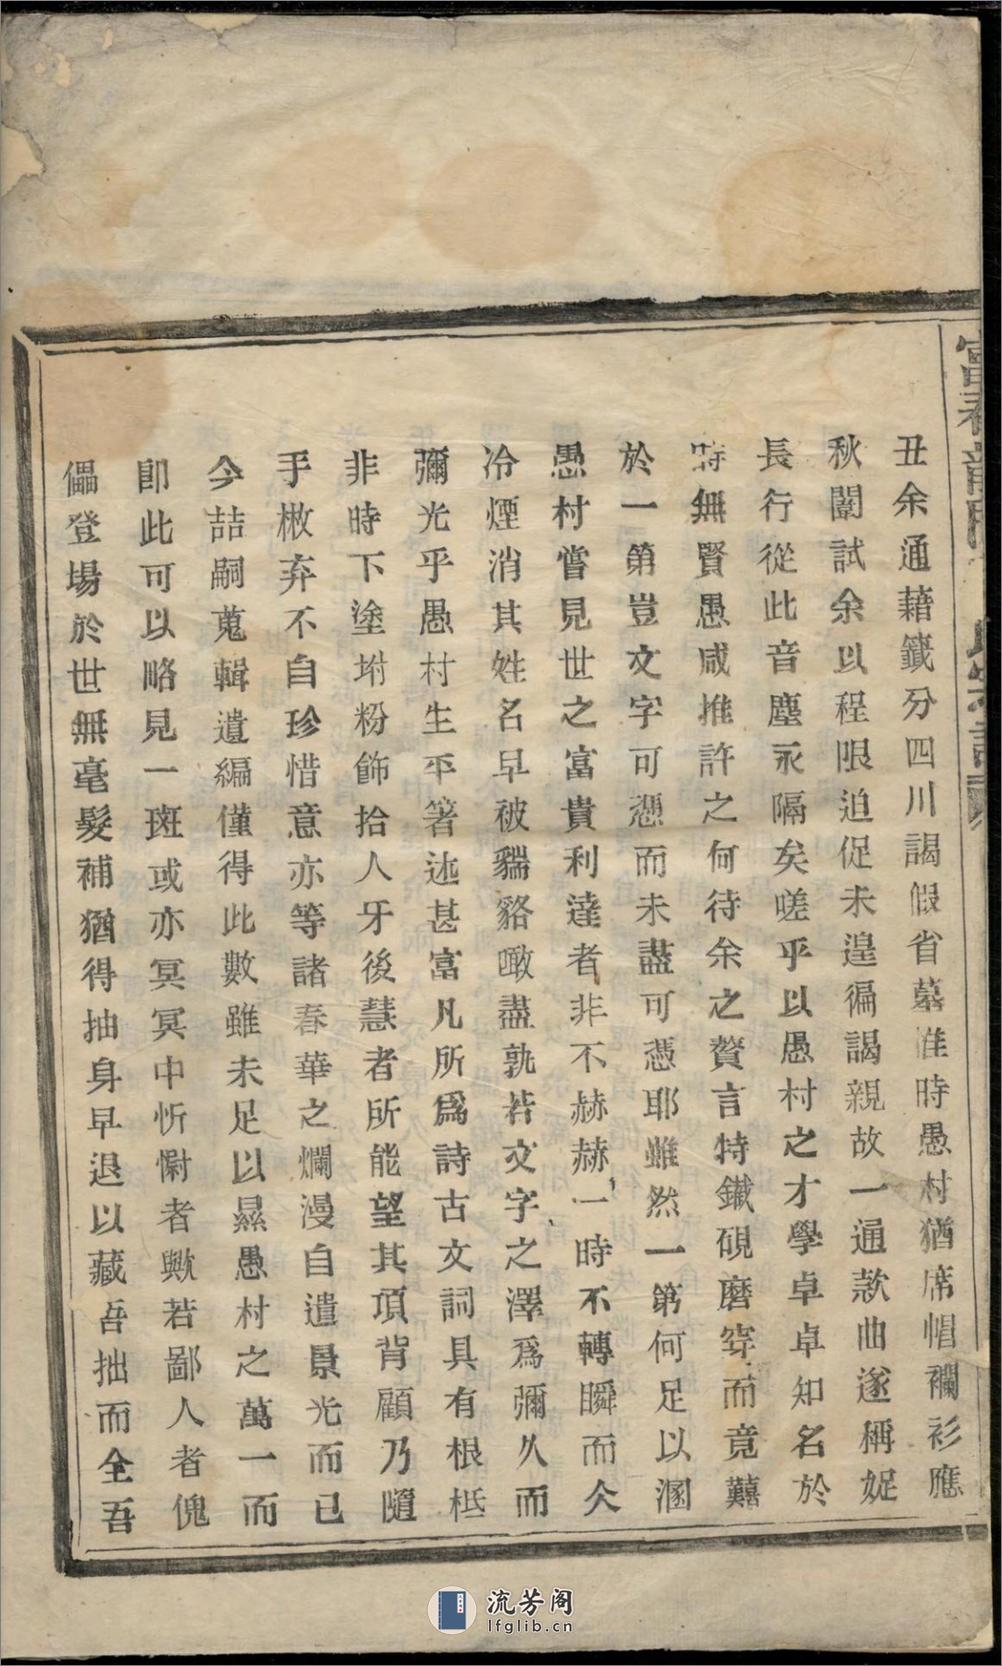 丑余通藉籤分四川謁假省墓維時愚村猶席帽襴衫應
秋闈試余以程限迫促未遑徧謁親故一通款曲遂稱娖
長行從此音塵永隔矣嗟乎以愚村之才學卓卓知名於
時無賢愚咸推許之何待余之贅言特鐵硯磨穿而竟囏
於一第豈文字可憑而未盡可憑耶雖然一第何足以溷
愚村嘗見世之富貴利達者非不赫赫一時不轉瞬而仌
冷煙消其姓名早被貒貉噉盡孰若文字之澤爲彌久而
彌光乎愚村生平著述甚富凡所爲詩古文詞具有根柢
非時下塗坿粉飾拾人牙後慧者所能望其項背顧乃隨
手敝弃不自珍惜意亦等諸春華之爛漫自遣景光而已
今喆嗣蒐輯遺編僅得此數雖未足以㬎愚村之萬一而
卽此可以略見一斑或亦冥冥中忻慰者歟若鄙人者傀
儡登場於世無毫髮補猶得抽身早退以藏吾拙而全吾
富春龍門
氏宗譜
流芳阁
lfglib.cn